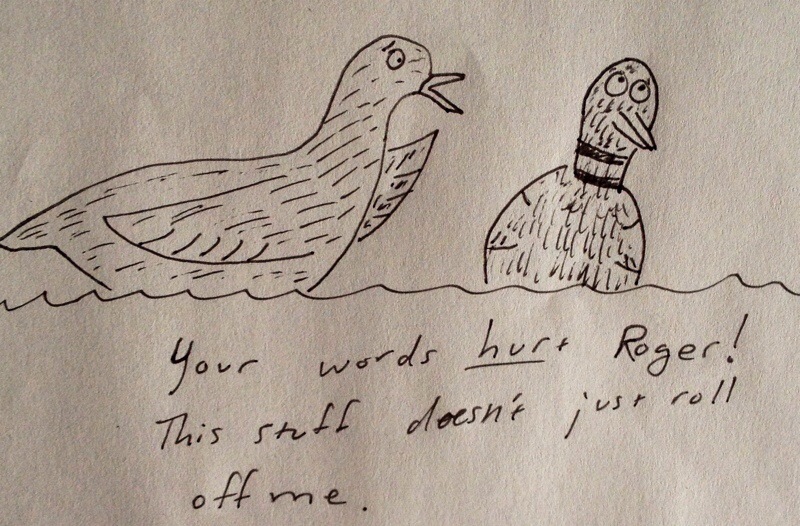 Your words hurt Roger!
This stuff doesn't just roll
off me.